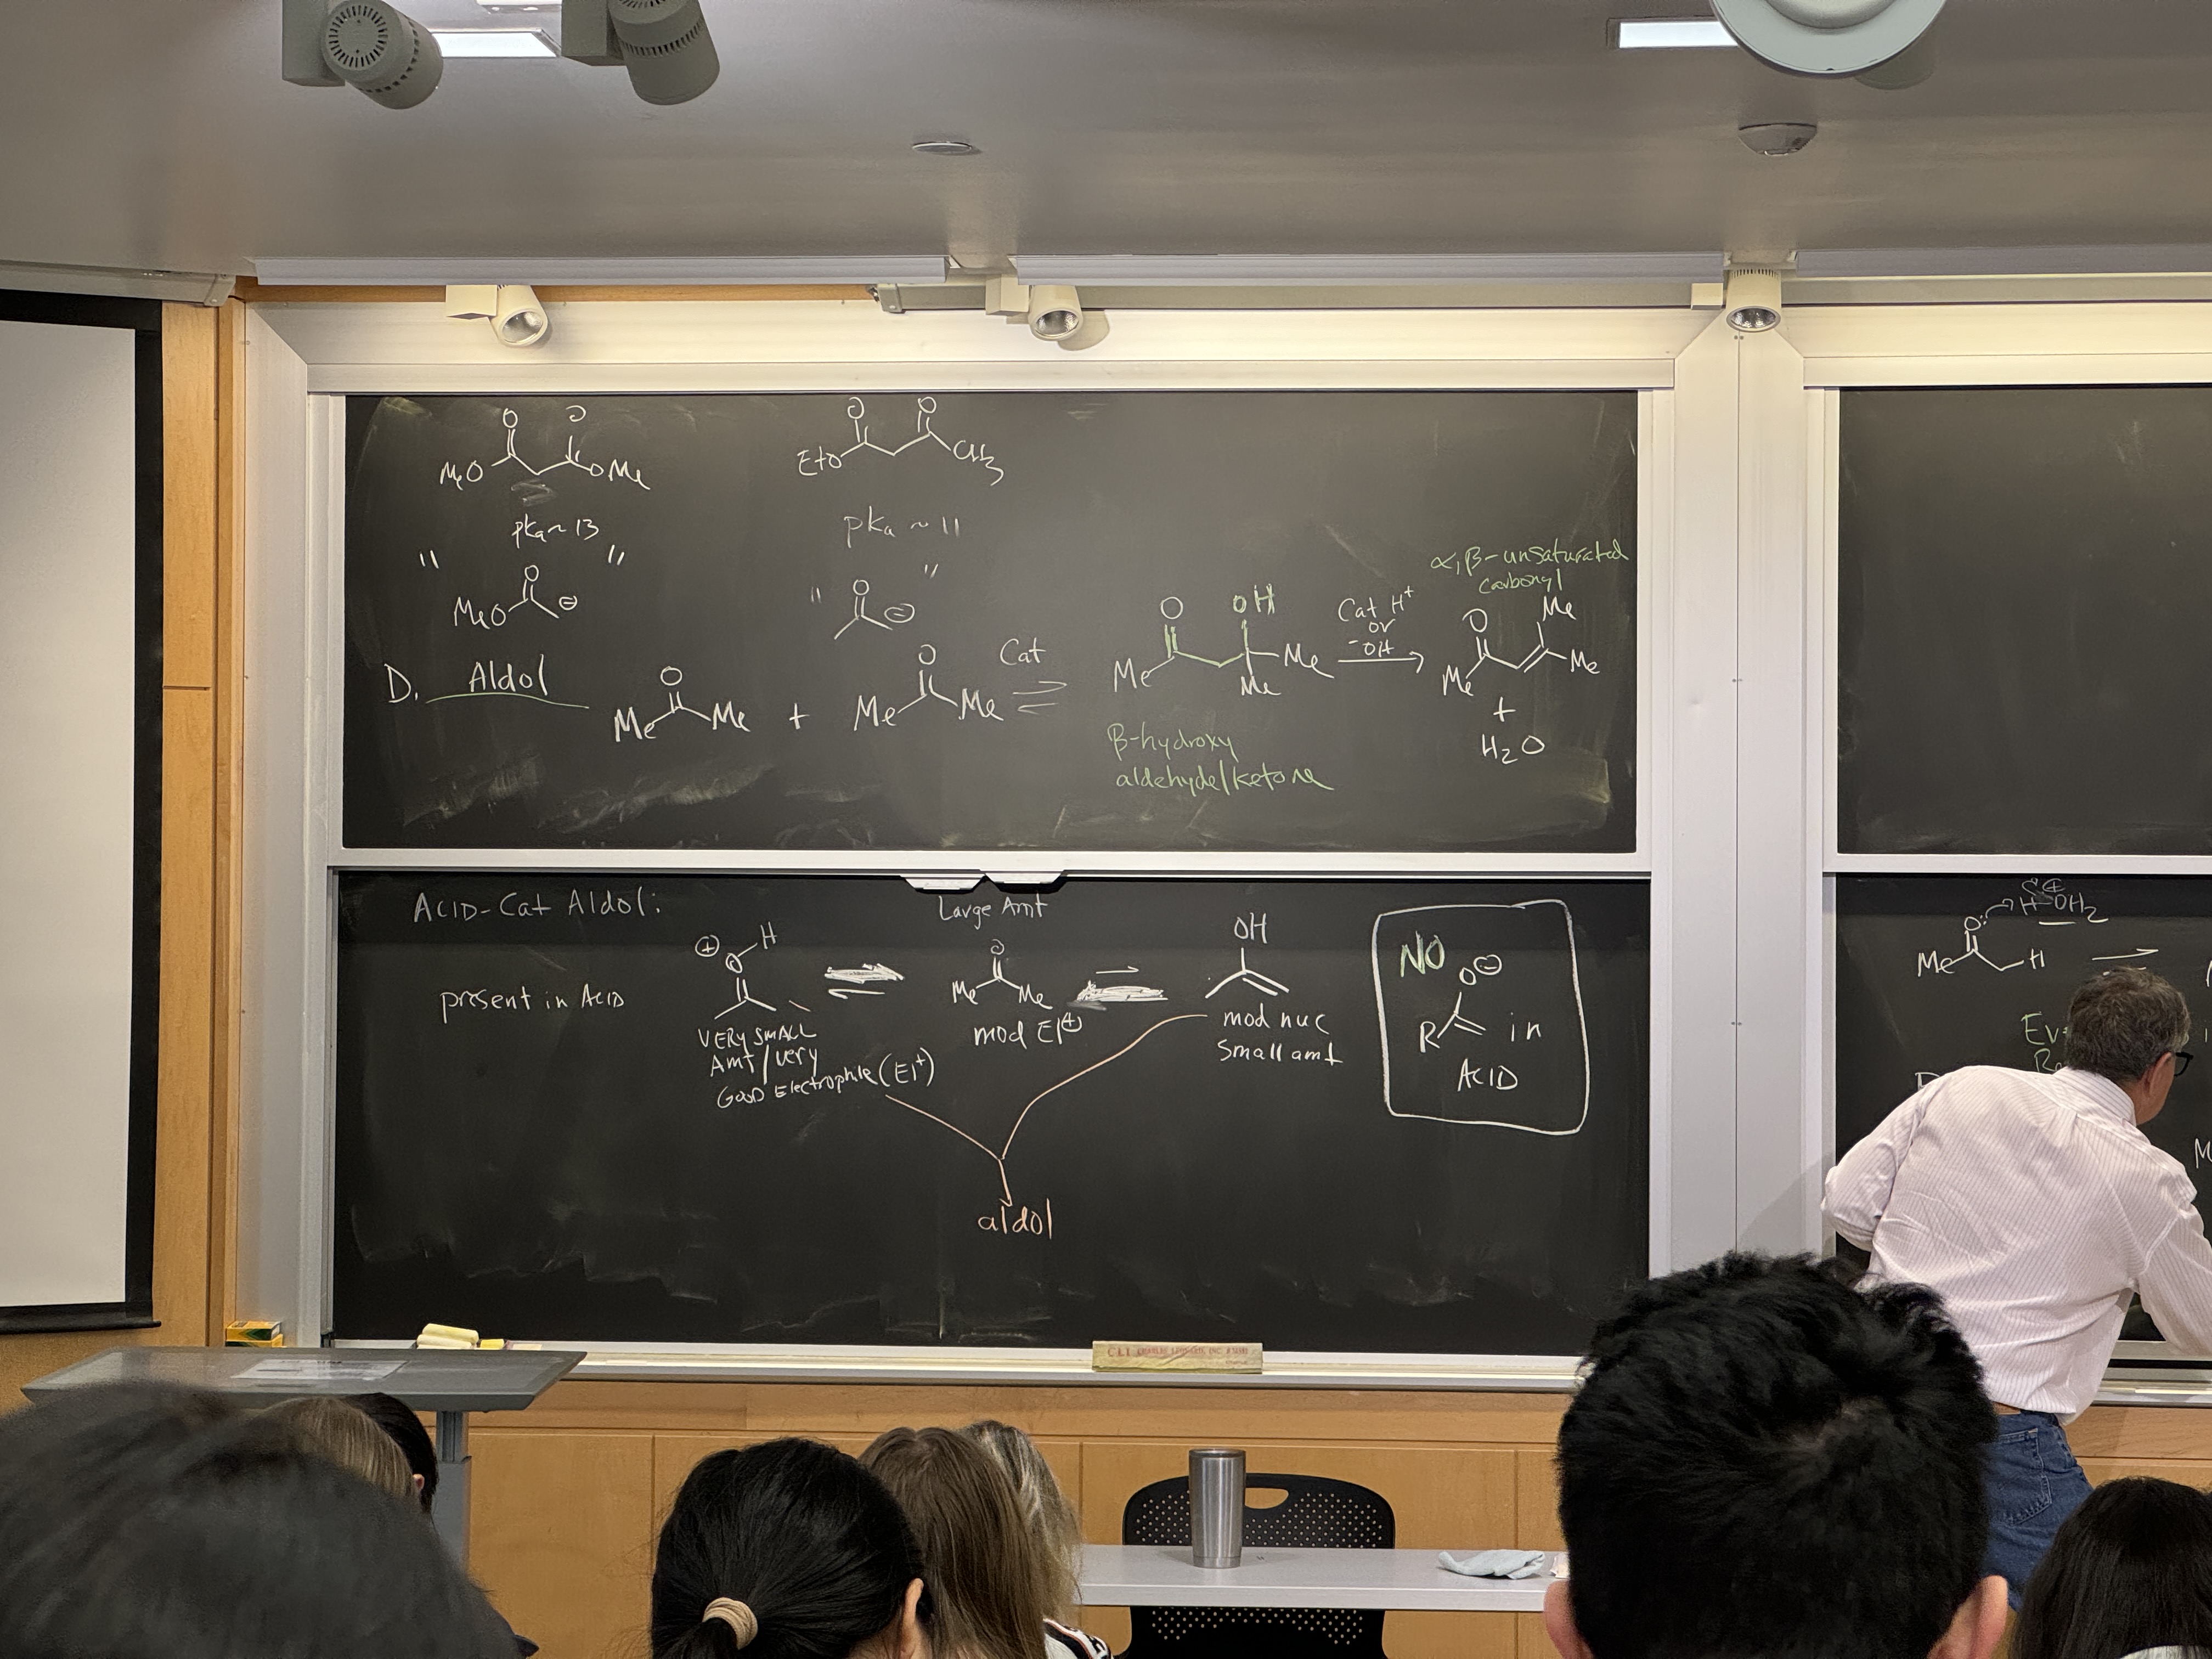 O O
MeO OMe
pKa ~ 13
" "
O
MeO ⊖
O O
EtO CH3
pKa ~ 11
" "
O
⊖
D. Aldol
O
Me Me
+
O
Me Me
Cat
O OH
Me Me
Me
β-hydroxy
aldehyde/ketone
Cat H+
or
-OH
α,β-unsaturated
carbonyl
O Me
Me Me
+
H2O
ACID-Cat Aldol:
present in ACID
⊕ H
O
VERY SMALL
Amt/very
GOOD Electrophile (El+)
Large Amt
O
Me Me
mod El⊕
OH
mod nuc
Small amt
aldol
NO
O⊖
R in
ACID
⊕
O: H-OH2
Me H